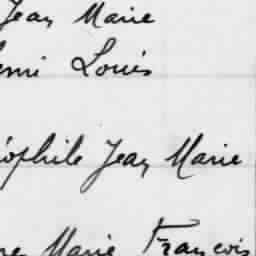 Jean Marie
Louis
éophile Jean Marie
Marie François